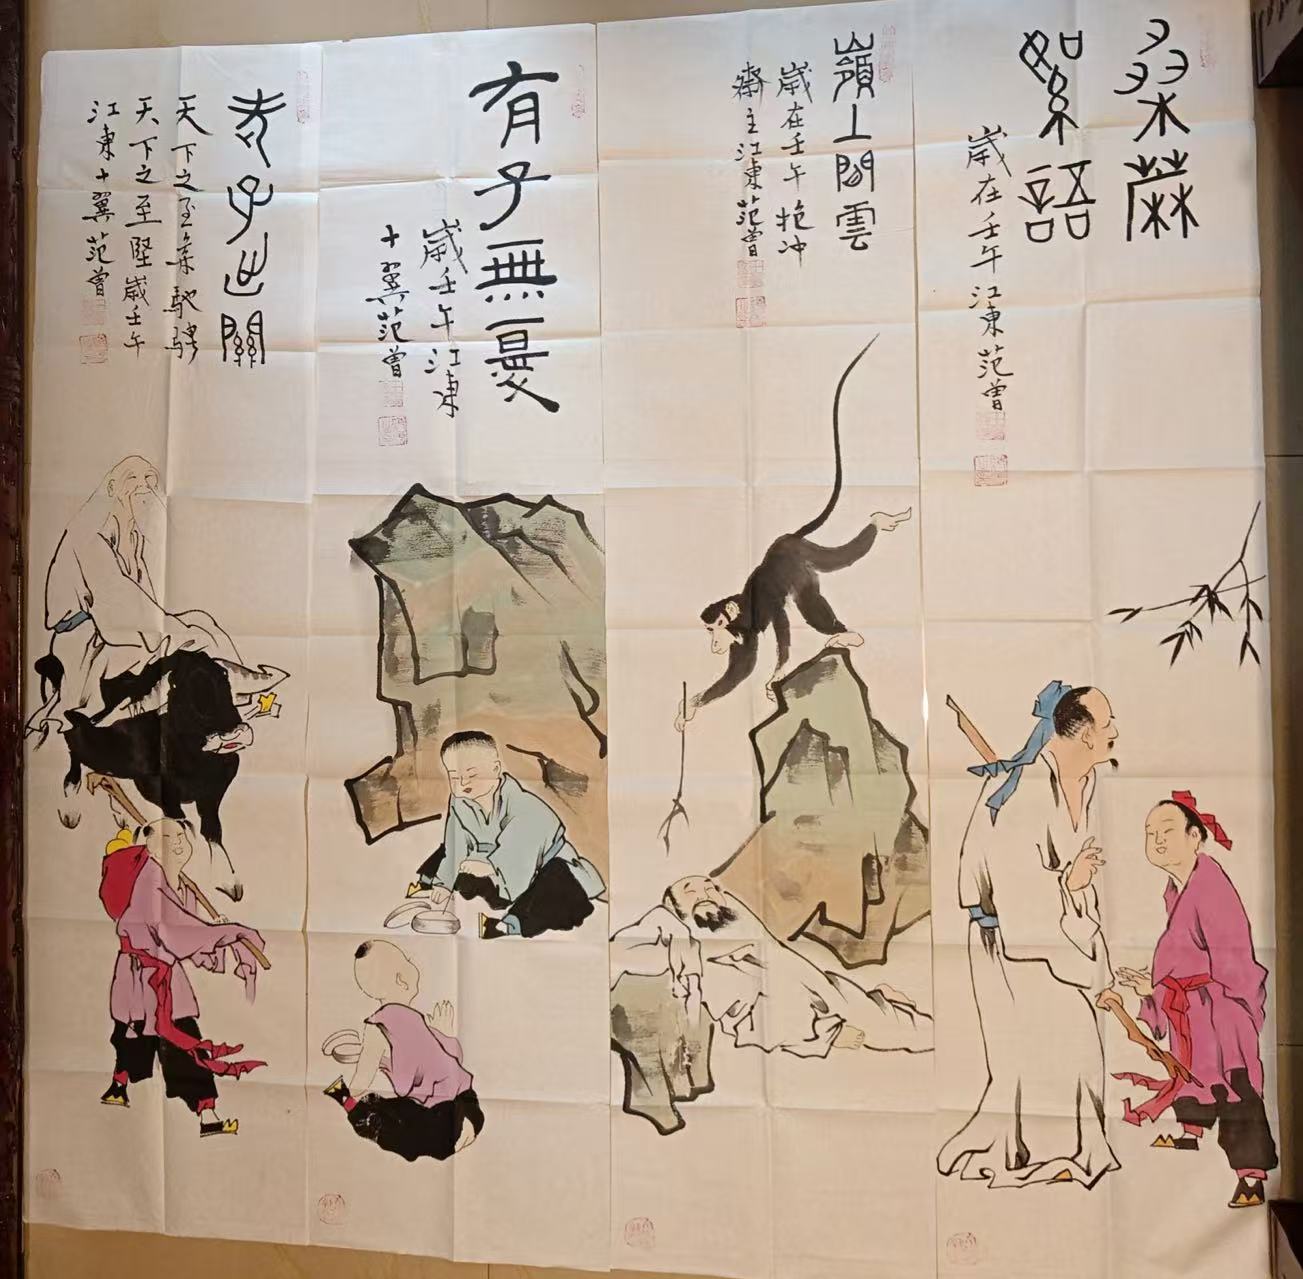 桑麻
絮語
歲在壬午江東范曾
嶺上閒雲
歲在壬午抱冲
齋主江東范曾
有子無憂
歲壬午江東
十翼范曾
老子出關
天下之至柔馳騁
天下之至堅歲壬午
江東十翼范曾